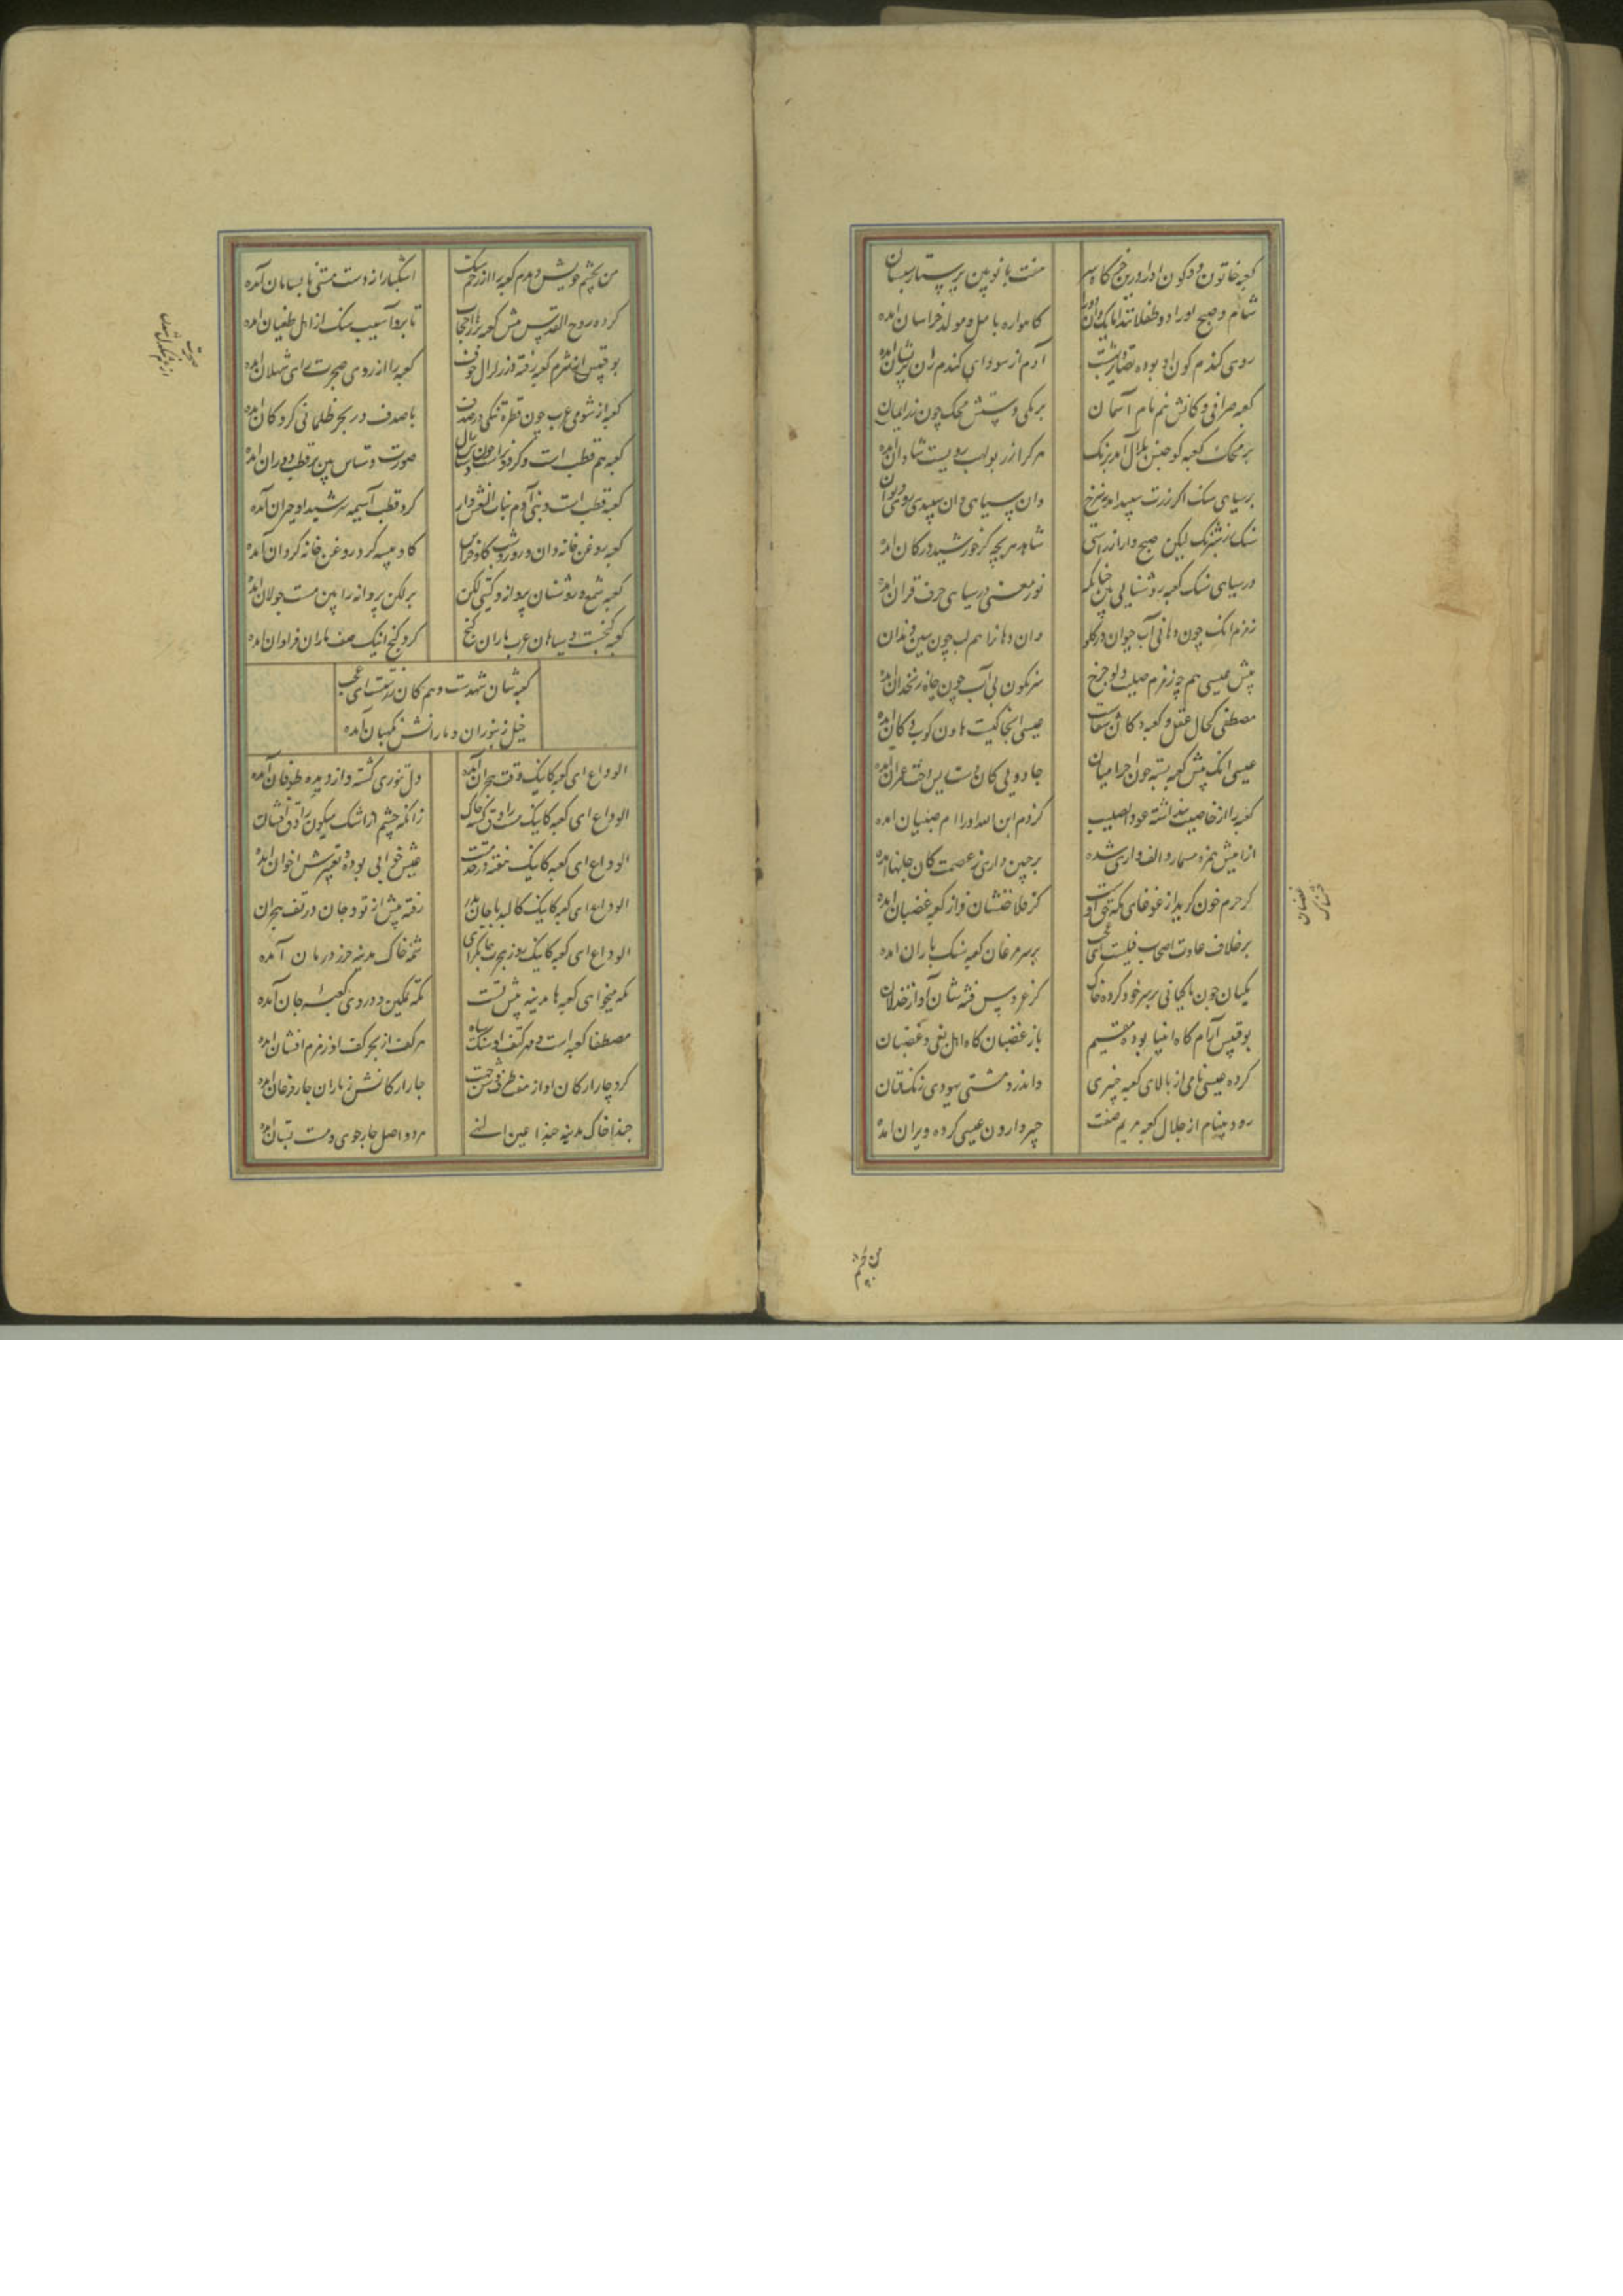 کعبه خاتون دو کون او را درین خرگاه سبز
هفت بانو بین پرستار بسان
شام و صبح او را دو طفلانند
کاهواره بابل و مولد خراسان آمده
روی گندم گون او بوده تصاویر بهشت
آدم از سودای گندم زان پریشان آمده
کعبه صرافی و دکانش نیم بام آسمان
بر یکی دستش محک چون زر ایمان
بر محک کعبه کو جنس بلال آمد برنک
هر که را زر بولهب رویست شادان آمده
بر سیاهی سنک اگر زرت سپید آمد به نرخ
وان سیاهی وان سپیدی روی دیوان
سنک زر شبرنک لیکن صبح وار از راستی
شاهد هر بچه کز خورشید در کان آمده
در سیاهی سنک کعبه روشنایی بین چنانکه
نور معنی در سیاهی حرف قران آمده
زمزم آنک چون دهانی آب حیوان در گلو
وان دهانرا هم لب چون سین دندان
پیش عیسی هم چه زمزم صلیب دلو چرخ
سرنکون بی آب چون چاه زنخدان آمده
مصطفی کحال عقل و کعبه دکان شفاست
عیسی آنجا کیست هاون کوب دکان آمده
عیسی آنک پیش کعبه بسته چون احرامیان
جادویی کان دست
کعبه را از خاصیت پنداشته عود الصلیب
کز دم ابن الله او را ام صبیان آمده
از پیش همزه مسمار و الف داری شده
بر چین داری ز عصمت کان جانها آمده
گر حرم خون گرید از غوغای مکه حق اوست
کز خلافتشان فراز کعبه غضبان آمده
بر خلاف عادت اصحاب فیلست ای عجب
بر سر مرغان کعبه سنک باران آمده
مکیان چون ماکیانی بر سر خود کرده خاک
کز خروس فتنه شان آواز خذلان
بوقبیس آرام گاه انبیا بوده مقیم
باز غضبان گاه اهل بغی و غضبان
کرده عیسی نامی از بالای کعبه خیبری
واندرو مشتی یهودی رنک فتان
رود پنهام از جلال کعبه مریم صفت
خیبر وارون عیسی کرده ویران آمده
من بچشم
من بچشم خویش دیدم کعبه را از زخم سنک
اشکبار از دست مشتی نا بسامان آمده
کرده روح القدس پیش کعبه پرها را حجاب
تا برو آسیب سنک از اهل طغیان آمده
بوقبیس از شرم کعبه رفته در زلزال خوف
کعبه را از روی ضجرت رای ثهلان آمده
کعبه از شوی عرب چون قطره تنکی در صدف
یا صدف در بحر ظلمانی گروگان آمده
کعبه هم قطب است و گردون راست چون دستاس زال
صورت دستاس بین بر قطب دوران آمده
کعبه قطب است و بنی آدم بنات النعش وار
گرد قطب آسیمه سر شیدا و حیران آمده
کعبه روغن خانه دان و روز و شب گاو خراس
گاو پیسه گرد روغن خانه گردان آمده
کعبه شمع و روشنان پروانه و گیتی لگن
بر لگن پروانه را بین مست جولان آمده
کعبه گنجست و سیاهان عرب ماران گنج
گرد گنج آنک صف ماران فراوان آمده
کعبه شان شهدست و هم کان زر رستست ای عجب
خیل زنبوران و مارانش نگهبان آمده
الوداع ای کعبه کاینک وقت هجران آمده
دل تنوری گشته و از دیده طوفان آمده
الوداع ای کعبه کاینک مست راوق گشته خاک
زانکه چشم از اشک میگون راوق افشان
الوداع ای کعبه کاینک هفته در خدمتت
عیش خوابی بوده و تعبیرش اخوان آمده
الوداع ای کعبه کاینک کالبد با جان بدر
رفته پیش از تو و جان در تف هجران
الوداع ای کعبه کاینک روز هجرت جانگزای
شمه خاک مدینه حرز درمان آمده
مکه میخواهی کعبه ها مدینه پیش تست
مکه تمکین و درو کعبه جان آمده
مصطفا کعبه است و مهر کتف او سنگ سیاه
هر کف از بحر کف او زمزم افشان آمده
گرد چار ارکان او از مصطفی
چار ارکانش ز یاران چار فرعان آمده
حبذا خاک مدینه حبذا عین النبی
هر دو اصل چار جوی و هشت بستان آمده